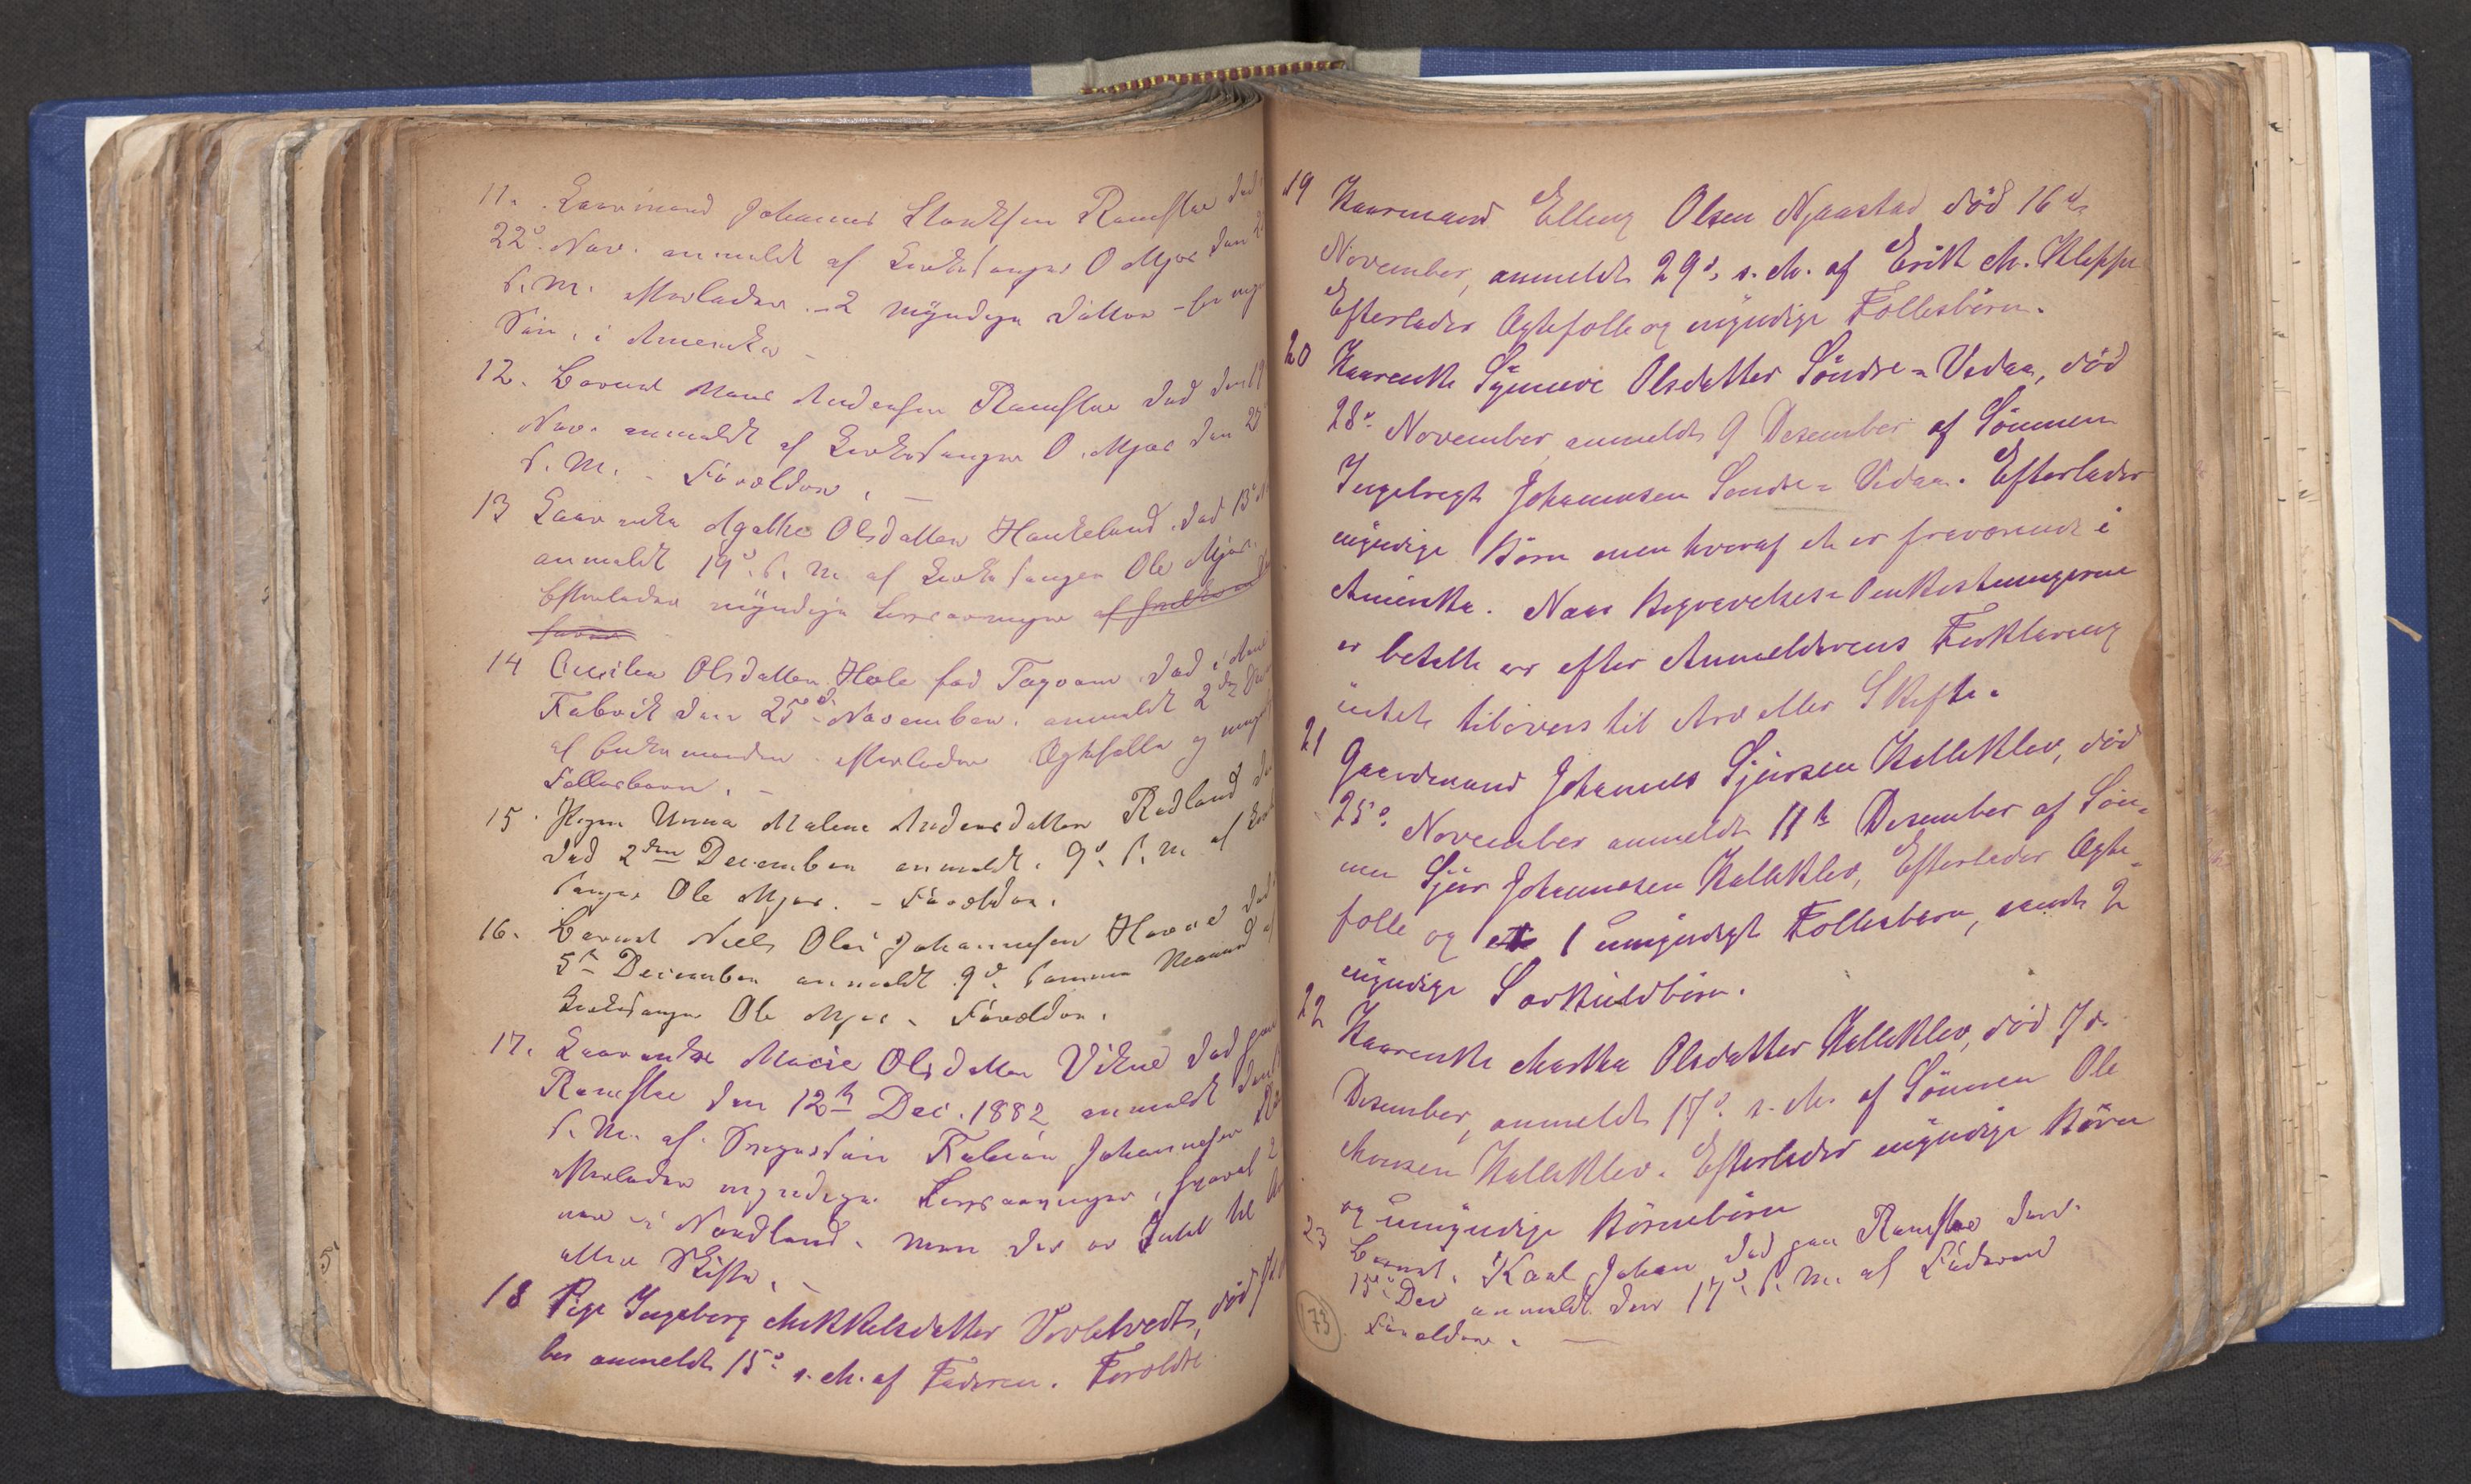 11. Kaarmand Johannes Ramslie død
22d. Nov. anmeldt af Kirkesanger O Mjøs den
s. M. efterlader - 2 myndige Døttre -
Søn, i Amerika -
12. Barnet Mons Andersen Ramslie død den 19
Nov. anmeldt af Kirkesanger O. Mjøs den
s. M. - Forældre. -
13 Kaarenke Agathe Olsdatter Haukeland. død 13d
anmeldt 19d. s. M. af Kirkesanger Ole Mjøs.
Efterlader myndige Livsarvinger af
14 Olsdatter Hole fød død i
Fabrik den 25d. November. anmeldt 2den
af Enkemanden - efterlader Ægtefælle og
Fællesbørn. -
15. Pigen Unna Malene Andersdatter Rødland
død 2den December anmeldt. 9d. s. M. af
sanger Ole Mjøs. - Forældre.
16. Barnet Niels Olai Johannesen død
5te December anmeldt 9d. samme Maaned af
Kirkesanger Ole Mjøs - Forældre.
17. Kaarenke Marie Olsdatter Vikne død paa
Ramslie den 12te Dec. 1882 anmeldt den
s. M. af Fabian Johannesen
efterlader myndige Livsarvinger, hvoraf 2
ere i Nordland. men der er Intet til
eller Skifte. -
18 Pige Ingeborg Mikkelsdatter død
ber anmeldt 15d. s. M. af Faderen. Forældre
19 Kaarmand Elling Olsen Njaastad død 16de
November, anmeldt 29d. s. M. af Erik M. Kleppe
Efterlader Ægtefolle og myndige Follesbörn.
20 Kaarenke Synneve Olsdatter Söndre=Vedaa, död
28d. November anmeldt 9 Desember af Sönnen
Ingebregt Johannesen Sondre=Vedaa. Efterlader
myndige Börn men hvoraf et er fraværende i
Amerika. Naar Begravelses=Omkostningerne
er betalte er efter Anmelderens Forklaring
intet tilovers til Arv eller Skifte.
21 Gaardmand Johannes Sjursen Halleklev, död
25d. November anmeldt 11te Desember af Sön=
nen Sjur Johannesen Halleklev, Efterlader Ægte=
folle og et 1 umyndigt Follesbarn, samt 2
myndige Særkuldbörn.
22 Kaarenke Martha Olsdatter Halleklev, död 7d.
Desember, anmeldt 17d. s. M. af Sönnen Ole
Monsen Halleklev. Efterlader myndige Börn
og umyndige Börnebörn
23 Barnet. Karl Johan død paa Ramslie den
15d. Dec anmeldt den 17d. s. M. af Faderen
Forældre. -
173
5